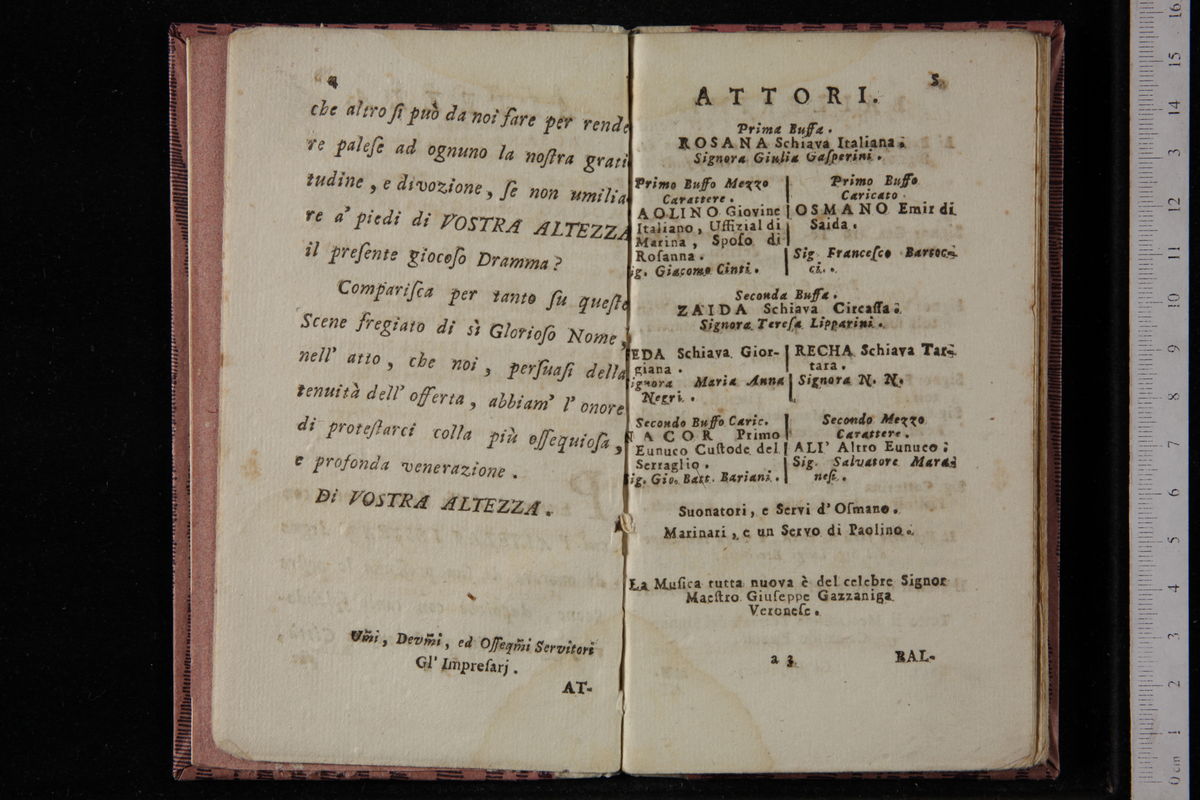 4
che altro ſi può da noi fare per rende
re paleſe ad ognuno la noſtra grati
tudine, e divozione, ſe non umilia
re a' piedi di VOSTRA ALTEZZA
il preſente giocoſo Dramma?
Compariſca per tanto ſu queſte
Scene fregiato di sì Glorioſo Nome,
nell' atto, che noi, perſuaſi della
tenuità dell' offerta, abbiam' l' onore
di proteſtarci colla più oſſequioſa,
e profonda venerazione.
Di VOSTRA ALTEZZA.
Um̃i, Devm̃i, ed Oſſeqm̃i Servitori
Gl' Impreſarj.
AT-
5
ATTORI.
Prima Buffa.
ROSANA Schiava Italiana.
Signora Giulia Gaſperini.
Primo Buffo Mezzo
Carattere.
AOLINO Giovine
Italiano, Uffizial di
Marina, Spoſo di
Roſanna.
ig. Giacomo Cinti.
Primo Buffo
Caricato.
OSMANO Emir di
Saida.
Sig. Franceſco Bartoc-
ci.
Seconda Buffa.
ZAIDA Schiava Circaſſa.
Signora Tereſa Lipparini.
EDA Schiava Gior-
giana.
ignora Maria Anna
Negri.
RECHA Schiava Tar-
tara.
Signora N. N.
Secondo Buffo Caric.
NACOR Primo
Eunuco Cuſtode del
Serraglio.
ig. Gio. Batt. Bariani.
Secondo Mezzo
Carattere.
ALI' Altro Eunuco.
Sig. Salvatore Mara-
neſi.
Suonatori, e Servi d' Oſmano.
Marinari, e un Servo di Paolino.
La Muſica tutta nuova è del celebre Signor
Maeſtro Giuſeppe Gazzaniga
Veroneſe.
a 3
BAL-
0 cm 1 2 3 4 5 6 7 8 9 10 11 12 13 14 15 16